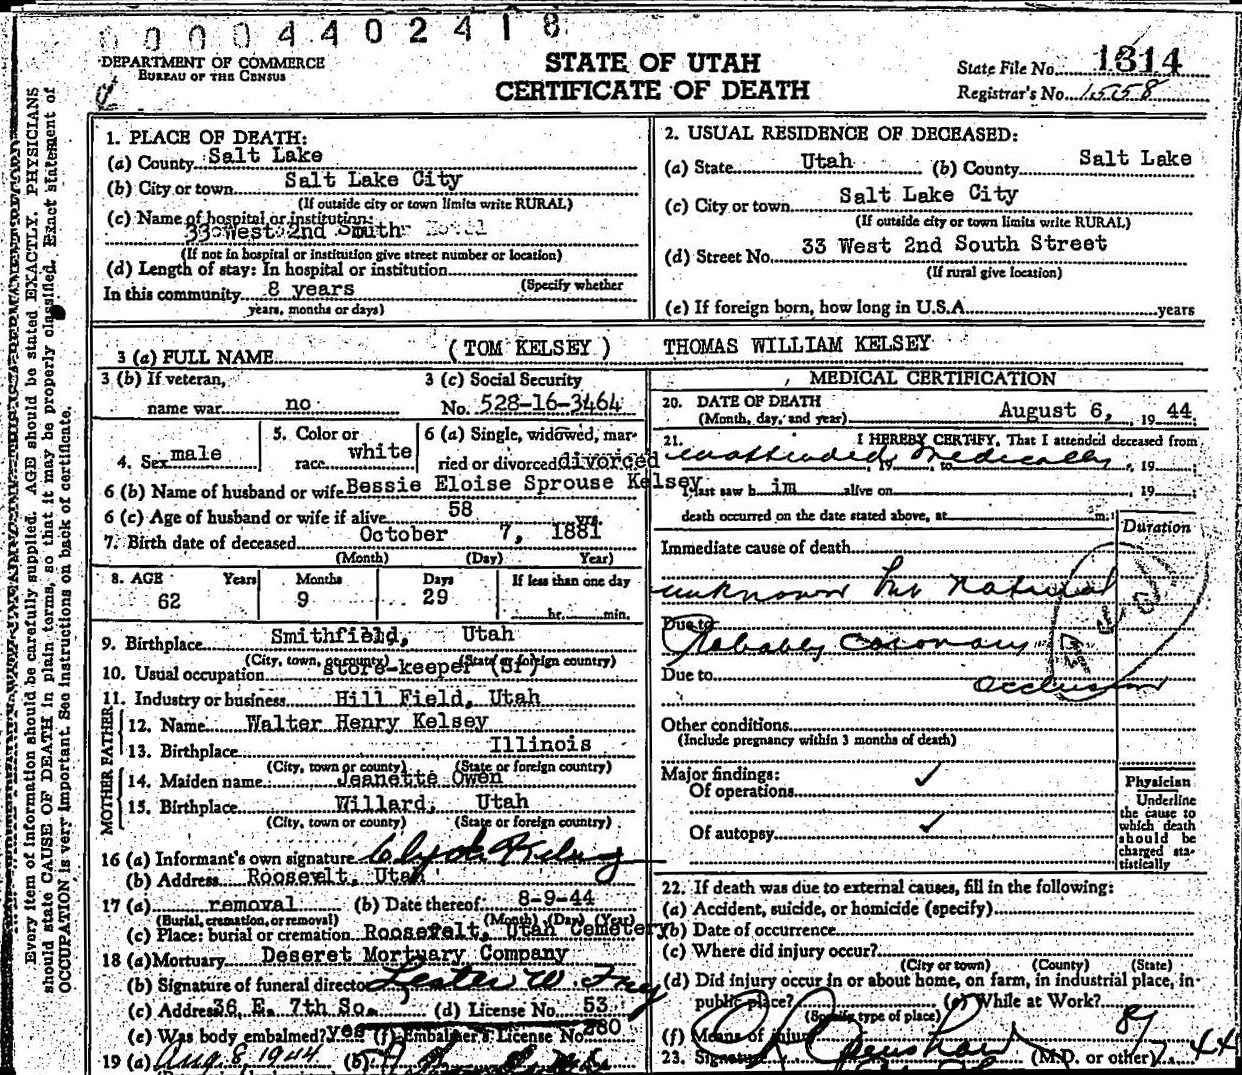 00004402418
DEPARTMENT OF COMMERCE
BUREAU OF THE CENSUS
STATE OF UTAH
CERTIFICATE OF DEATH
State File No. 1314
Registrar's No. 1558
Every item of information should be carefully supplied. AGE should be stated EXACTLY. PHYSICIANS
should state CAUSE OF DEATH in plain terms, so that it may be properly classified. Exact statement of
OCCUPATION is very important. See instructions on back of certificate.
1. PLACE OF DEATH:
(a) County Salt Lake
(b) City or town Salt Lake City
(If outside city or town limits write RURAL)
(c) Name of hospital or institution:
33 West 2nd South Hotel
(If not in hospital or institution give street number or location)
(d) Length of stay: In hospital or institution
(Specify whether
In this community 8 years
years, months or days)
2. USUAL RESIDENCE OF DECEASED:
(a) State Utah (b) County Salt Lake
(c) City or town Salt Lake City
(If outside city or town limits write RURAL)
(d) Street No. 33 West 2nd South Street
(If rural give location)
(e) If foreign born, how long in U.S.A. years
3 (a) FULL NAME (TOM KELSEY) THOMAS WILLIAM KELSEY
3 (b) If veteran,
name war no
3 (c) Social Security
No. 528-16-3464
4. Sex male
5. Color or
race white
6 (a) Single, widowed, mar-
ried or divorced divorced
6 (b) Name of husband or wife Bessie Eloise Sprouse Kelsey
6 (c) Age of husband or wife if alive 58 yrs.
7. Birth date of deceased October 7, 1881
(Month) (Day) Year)
8. AGE Years Months Days If less than one day
62 9 29 hr. min.
9. Birthplace Smithfield, Utah
(City, town, or county) (State or foreign country)
10. Usual occupation store-keeper (Sr)
11. Industry or business Hill Field, Utah
FATHER
12. Name Walter Henry Kelsey
13. Birthplace Illinois
(City, town or county) (State or foreign country)
MOTHER
14. Maiden name Jeanette Owen
15. Birthplace Willard, Utah
(City, town or county) (State or foreign country)
16 (a) Informant's own signature Clyde Kelsey
(b) Address Roosevelt, Utah
17 (a) removal (b) Date thereof 8-9-44
(Burial, cremation, or removal) (Month) (Day) (Year)
(c) Place: burial or cremation Roosevelt, Utah Cemetery
18 (a) Mortuary Deseret Mortuary Company
(b) Signature of funeral director Lester W Frey
(c) Address 36 E. 7th So. (d) License No. 53
(e) Was body embalmed? yes (f) Embalmer's License No. 280
19 (a) Aug 8, 1944 (b)
MEDICAL CERTIFICATION
20. DATE OF DEATH
(Month, day, and year) August 6, 1944
21. I HEREBY CERTIFY, That I attended deceased from
unattended, 19 to medically, 19
I last saw h im alive on , 19
death occurred on the date stated above, at m.
Duration
Immediate cause of death
unknown but natural
Due to
Probably coronary
Due to occlusion
Other conditions
(Include pregnancy within 3 months of death)
Major findings:
Of operations ✓
Of autopsy ✓
Physician
Underline
the cause to
which death
should be
charged sta-
tistically
22. If death was due to external causes, fill in the following:
(a) Accident, suicide, or homicide (specify)
(b) Date of occurrence
(c) Where did injury occur?
(City or town) (County) (State)
(d) Did injury occur in or about home, on farm, in industrial place, in
public place? (e) While at Work?
(Specify type of place)
(f) Means of injury
23. Signature (M.D. or other) 8/7 44